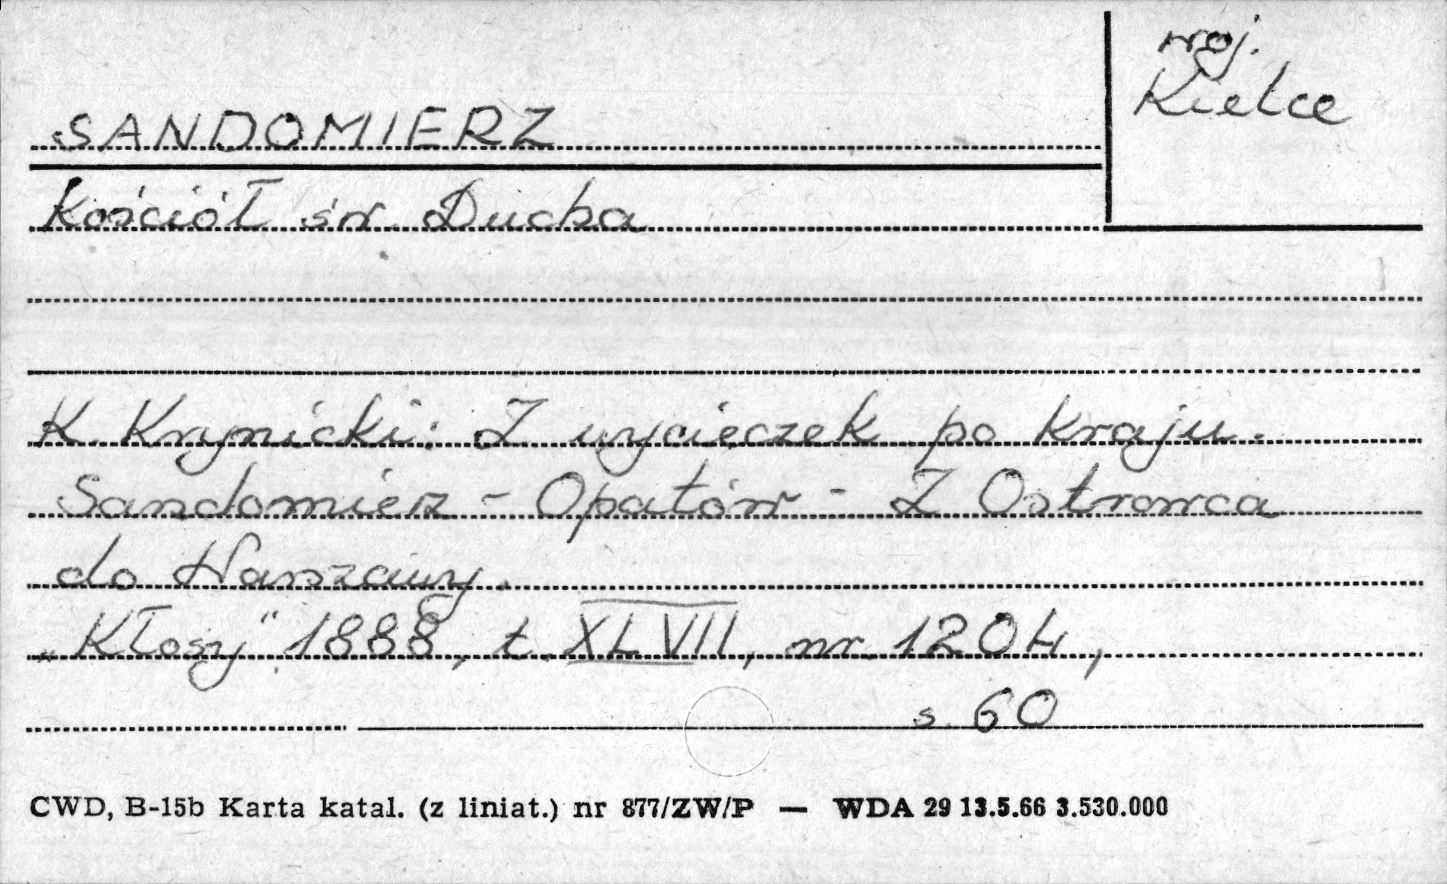 woj.
Kielce
SANDOMIERZ
Kościół św. Ducha
K. Krynicki: Z wycieczek po kraju.
Sandomierz - Opatów - Z Ostrowca
do Warszawy.
„Kłosy" 1888, t. XLVII, nr. 1204,
s. 60
CWD, B-15b Karta katal. (z liniat.) nr 877/ZW/P — WDA 29 13.5.66 3.530.000